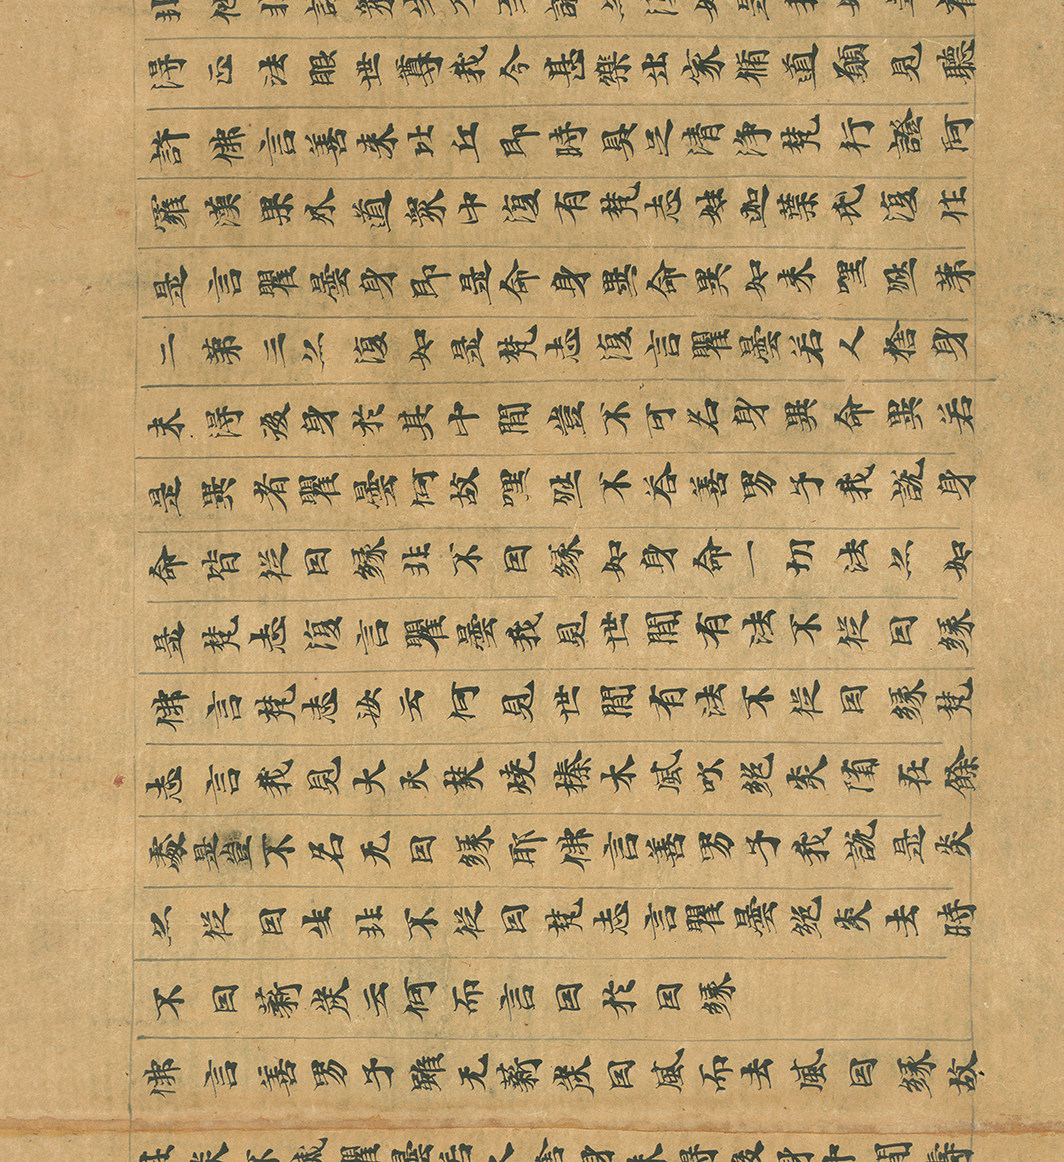 得正法眼世尊我今甚樂出家脩道願見聽
許佛言善来比丘即時具足清淨梵行證阿
羅漢果外道衆中復有梵志姓迦葉氏復作
是言瞿曇身即是命身異命異如来嘿然第
二第三亦復如是梵志復言瞿曇若人捨身
未得後身於其中間豈不可名身異命異若
是異者瞿曇何故嘿然不答善男子我說身
命皆從因緣非不因緣如身命一切法亦如
是梵志復言瞿曇我見世間有法不從因緣
佛言梵志汝云何見世間有法不從因緣梵
志言我見大火焚燒榛木風吹絕炎墮在餘
處是豈不名无因緣耶佛言善男子我說是炎
亦從因生非不從因梵志言瞿曇絕炎去時
不因薪炭云何而言因於因緣
佛言善男子雖无薪炭因風而去風因緣故